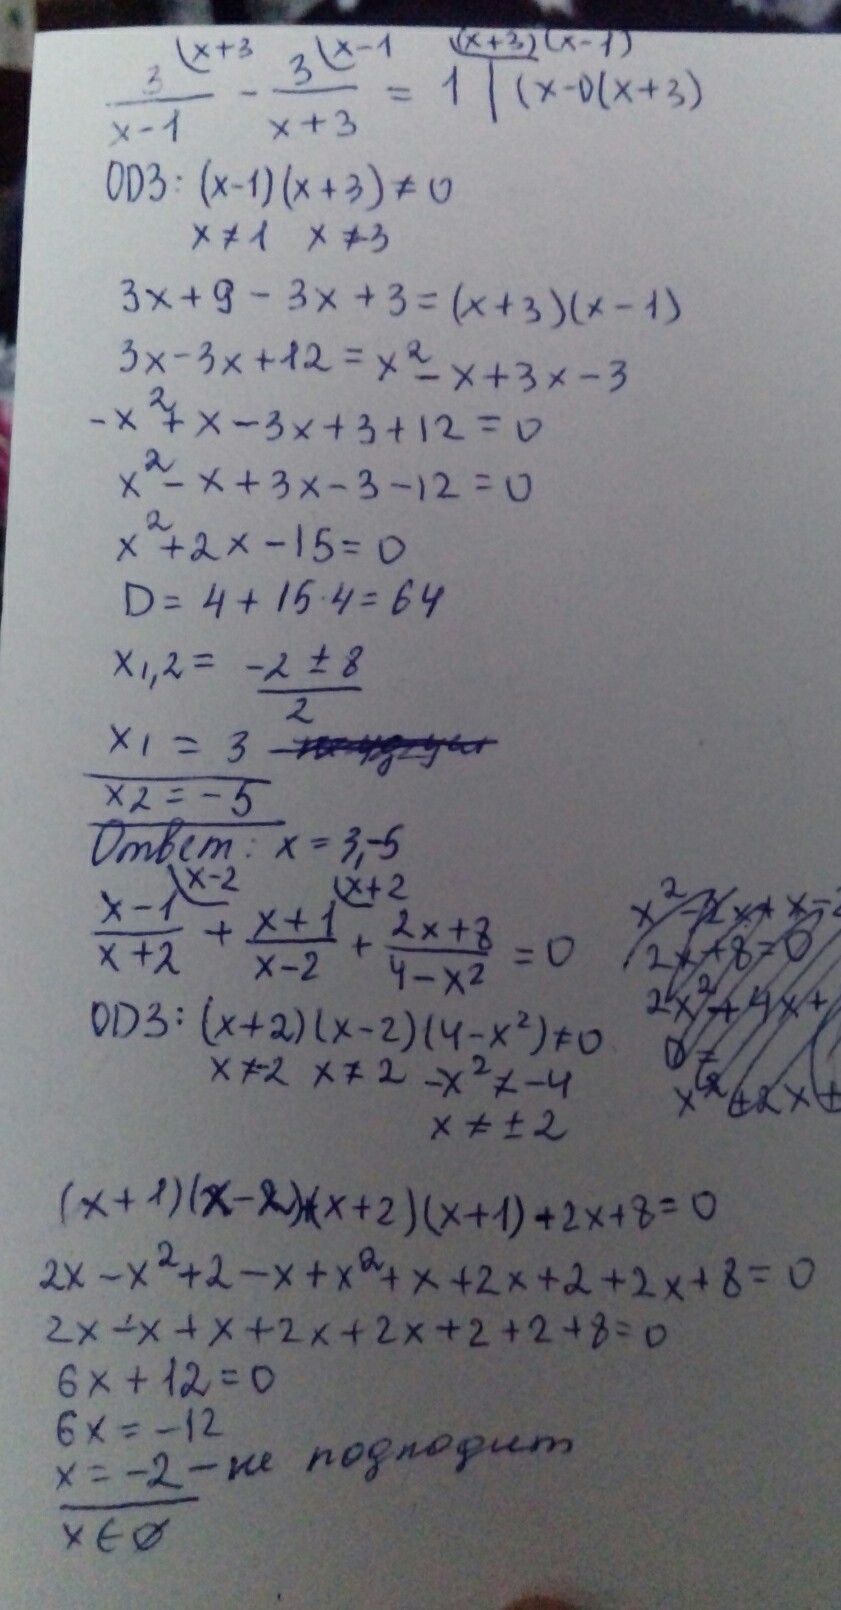 3 \x+3   3 \x-1   (x+3)(x-1)
3/(x-1) - 3/(x+3) = 1 | (x-1)(x+3)
ОДЗ: (x-1)(x+3) ≠ 0
x ≠ 1 x ≠ -3
3x+9 - 3x + 3 = (x+3)(x-1)
3x-3x+12 = x² - x + 3x - 3
-x² + x - 3x + 3 + 12 = 0
x² - x + 3x - 3 - 12 = 0
x² + 2x - 15 = 0
D = 4 + 15·4 = 64
x1,2 = (-2 ± 8)/2
x1 = 3
x2 = -5
Ответ: x = 3,-5
(x-1)/(x+2) \x-2 + (x+1)/(x-2) \x+2 + (2x+8)/(4-x²) = 0
ОДЗ: (x+2)(x-2)(4-x²) ≠ 0
x ≠ -2 x ≠ 2 -x² ≠ -4
x ≠ ±2
2x+8=0
(x+1)(x-2)+(x+2)(x+1)+2x+8=0
2x - x² + 2 - x + x² + x + 2x + 2 + 2x + 8 = 0
2x - x + x + 2x + 2x + 2 + 2 + 8 = 0
6x + 12 = 0
6x = -12
x = -2 - не подходит
x ∈ ∅